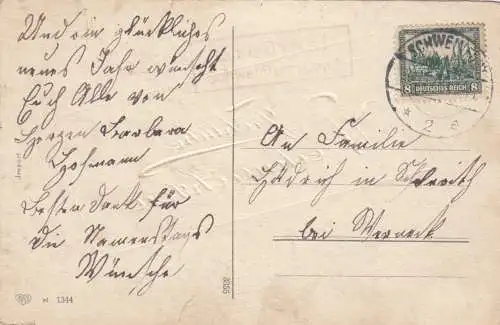 Und ein glückliches
neues Jahr wünscht
Euch Alle von
Herzen Barbara
Hofmann
besten Dank für
die Namenstags
Wünsche
An Familie
in
bei Werneck
SCHWEIN
DEUTSCHES REICH
8 8
2
M 1344